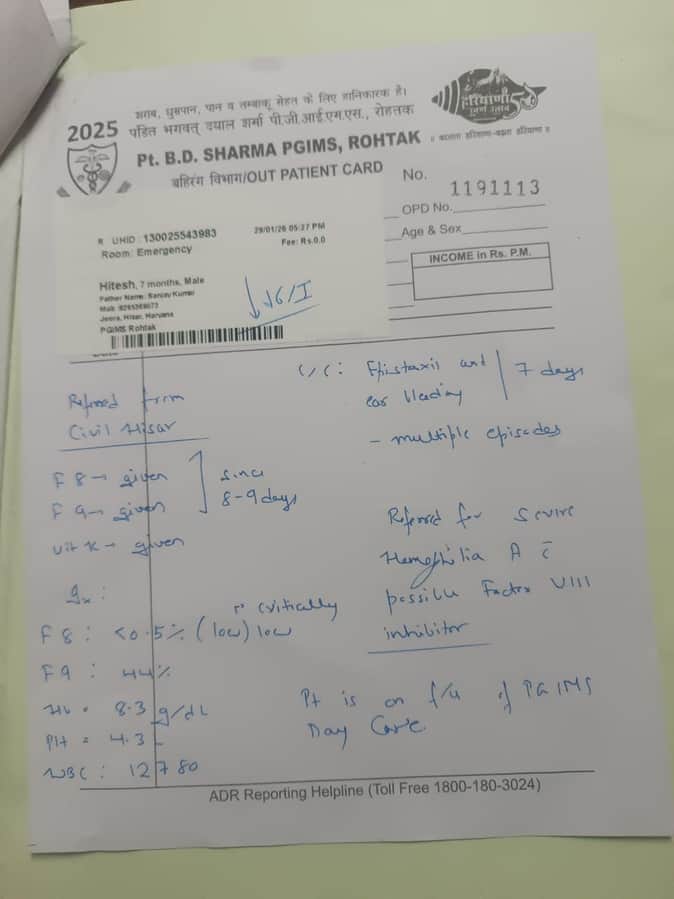 शराब, धुम्रपान, पान व तम्बाकू सेहत के लिए हानिकारक है।
2025
पंडित भगवत् दयाल शर्मा पी.जी.आई.एम.एस., रोहतक
हरियाणा
Pt. B.D. SHARMA PGIMS, ROHTAK
बहिरंग विभाग/OUT PATIENT CARD
No.
1191113
OPD No.
Age & Sex
INCOME in Rs. P.M.
R UHID : 130025543983
29/01/26 05:27 PM
Room: Emergency
Fee: Rs.0.0
Hitesh, 7 months, Male
Father Name: Sanjay Kumar
Jeora, Hisar, Haryana
PGIMS Rohtak
C/C: Epistaxis and
ear bleeding
7 days
- multiple episodes
Referred from
Civil Hisar
F 8 → given
F 9 → given
since
8-9 days
Vit K → given
Referred for Severe
Hemophilia A c̄
possible Factor VIII
inhibitor
F 8 : <0.5% (low)
critically
low
F 9 : 44%
Hb = 8.3 g/dL
Plt = 4.3 L
WBC : 12780
Pt is on f/u of PGIMS
Day Care
ADR Reporting Helpline (Toll Free 1800-180-3024)